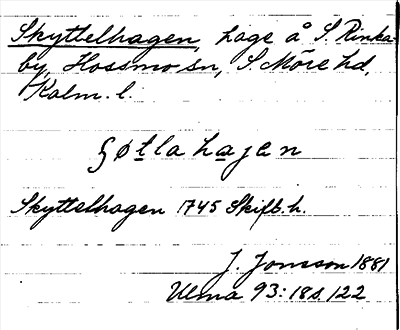 Skyttelhagen, hage å S. Rinka-
by, Hossmo sn, S. Möre hd,
Kalm. l.
ʃøtlahajen
Skyttelhagen 1745 Skift.h.
J. Jonsson 1881
Ulma 93:18 s. 122